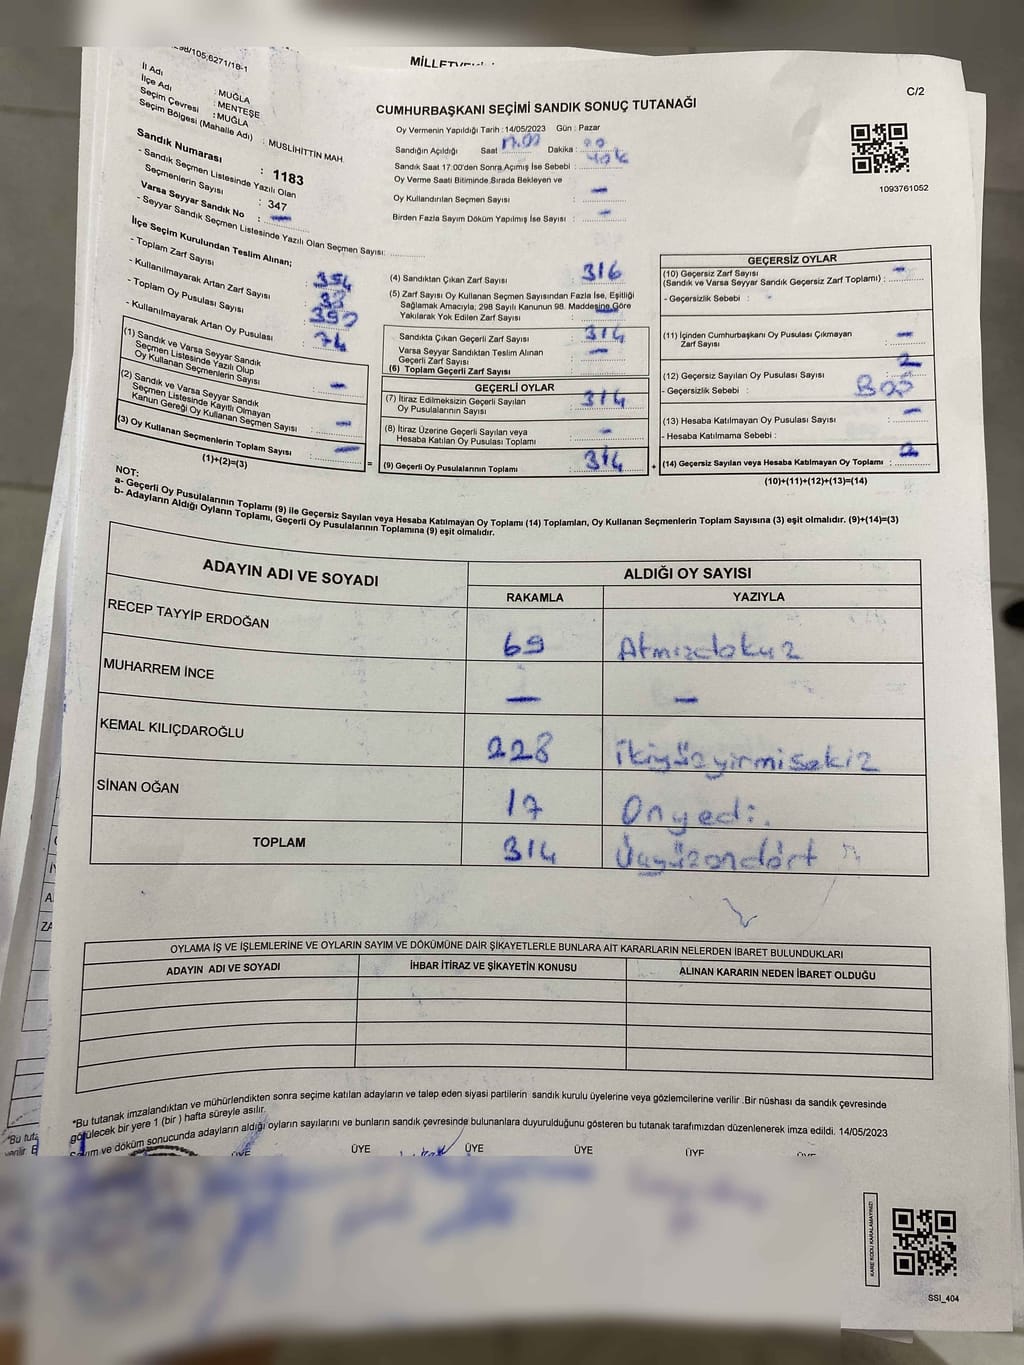 298/105,6271/18-1
C/2
CUMHURBAŞKANI SEÇİMİ SANDIK SONUÇ TUTANAĞI
İl Adı : MUĞLA
İlçe Adı : MENTEŞE
Seçim Çevresi : MUĞLA
Seçim Bölgesi (Mahalle Adı) : MUSLİHİTTİN MAH.
Sandık Numarası : 1183
- Sandık Seçmen Listesinde Yazılı Olan
Seçmenlerin Sayısı : 347
Varsa Seyyar Sandık No : —
- Seyyar Sandık Seçmen Listesinde Yazılı Olan Seçmen Sayısı:
Oy Vermenin Yapıldığı Tarih : 14/05/2023 Gün : Pazar
Sandığın Açıldığı Saat 17.00 Dakika : 00
Sandık Saat 17:00'den Sonra Açımış İse Sebebi : yok
Oy Verme Saati Bitiminde Sırada Bekleyen ve
Oy Kullandırılan Seçmen Sayısı : —
Birden Fazla Sayım Döküm Yapılmış İse Sayısı : —
1093761052
İlçe Seçim Kurulundan Teslim Alınan;
- Toplam Zarf Sayısı : 354
- Kullanılmayarak Artan Zarf Sayısı : 38
- Toplam Oy Pusulası Sayısı : 390
- Kullanılmayarak Artan Oy Pusulası : 74
(1) Sandık ve Varsa Seyyar Sandık
Seçmen Listesinde Yazılı Olup
Oy Kullanan Seçmenlerin Sayısı : —
(2) Sandık ve Varsa Seyyar Sandık
Seçmen Listesinde Kayıtlı Olmayan
Kanun Gereği Oy Kullanan Seçmen Sayısı : —
(3) Oy Kullanan Seçmenlerin Toplam Sayısı : —
(1)+(2)=(3)
(4) Sandıktan Çıkan Zarf Sayısı : 316
(5) Zarf Sayısı Oy Kullanan Seçmen Sayısından Fazla İse, Eşitliği
Sağlamak Amacıyla, 298 Sayılı Kanunun 98. Maddesine Göre
Yakılarak Yok Edilen Zarf Sayısı : —
Sandıkta Çıkan Geçerli Zarf Sayısı : 314
Varsa Seyyar Sandıktan Teslim Alınan
Geçerli Zarf Sayısı : —
(6) Toplam Geçerli Zarf Sayısı
GEÇERLİ OYLAR
(7) İtiraz Edilmeksizin Geçerli Sayılan
Oy Pusulalarının Sayısı : 314
(8) İtiraz Üzerine Geçerli Sayılan veya
Hesaba Katılan Oy Pusulası Toplamı : —
= (9) Geçerli Oy Pusulalarının Toplamı : 314
GEÇERSİZ OYLAR
(10) Geçersiz Zarf Sayısı
(Sandık ve Varsa Seyyar Sandık Geçersiz Zarf Toplamı) : —
- Geçersizlik Sebebi : -
(11) İçinden Cumhurbaşkanı Oy Pusulası Çıkmayan
Zarf Sayısı : —
(12) Geçersiz Sayılan Oy Pusulası Sayısı : 2
- Geçersizlik Sebebi : BOŞ
(13) Hesaba Katılmayan Oy Pusulası Sayısı : —
- Hesaba Katılmama Sebebi :
+ (14) Geçersiz Sayılan veya Hesaba Katılmayan Oy Toplamı : 2
(10)+(11)+(12)+(13)=(14)
NOT:
a- Geçerli Oy Pusulalarının Toplamı (9) ile Geçersiz Sayılan veya Hesaba Katılmayan Oy Toplamı (14) Toplamları, Oy Kullanan Seçmenlerin Toplam Sayısına (3) eşit olmalıdır. (9)+(14)=(3)
b- Adayların Aldığı Oyların Toplamı, Geçerli Oy Pusulalarının Toplamına (9) eşit olmalıdır.
ADAYIN ADI VE SOYADI ALDIĞI OY SAYISI
RAKAMLA YAZIYLA
RECEP TAYYİP ERDOĞAN 69 Atmızdokuz
MUHARREM İNCE — —
KEMAL KILIÇDAROĞLU 228 ikiyüzyirmisekiz
SİNAN OĞAN 17 Onyedi.
TOPLAM 314 Üçyüzondört
OYLAMA İŞ VE İŞLEMLERİNE VE OYLARIN SAYIM VE DÖKÜMÜNE DAİR ŞİKAYETLERLE BUNLARA AİT KARARLARIN NELERDEN İBARET BULUNDUKLARI
ADAYIN ADI VE SOYADI İHBAR İTİRAZ VE ŞİKAYETİN KONUSU ALINAN KARARIN NEDEN İBARET OLDUĞU
*Bu tutanak imzalandıktan ve mühürlendikten sonra seçime katılan adayların ve talep eden siyasi partilerin sandık kurulu üyelerine veya gözlemcilerine verilir .Bir nüshası da sandık çevresinde
görülecek bir yere 1 (bir ) hafta süreyle asılır.
Sayım ve döküm sonucunda adayların aldığı oyların sayılarını ve bunların sandık çevresinde bulunanlara duyurulduğunu gösteren bu tutanak tarafımızdan düzenlenerek imza edildi. 14/05/2023
ÜYE ÜYE ÜYE ÜYE ÜYE
KARE KODU KARALAMAYINIZ!
SSI_404